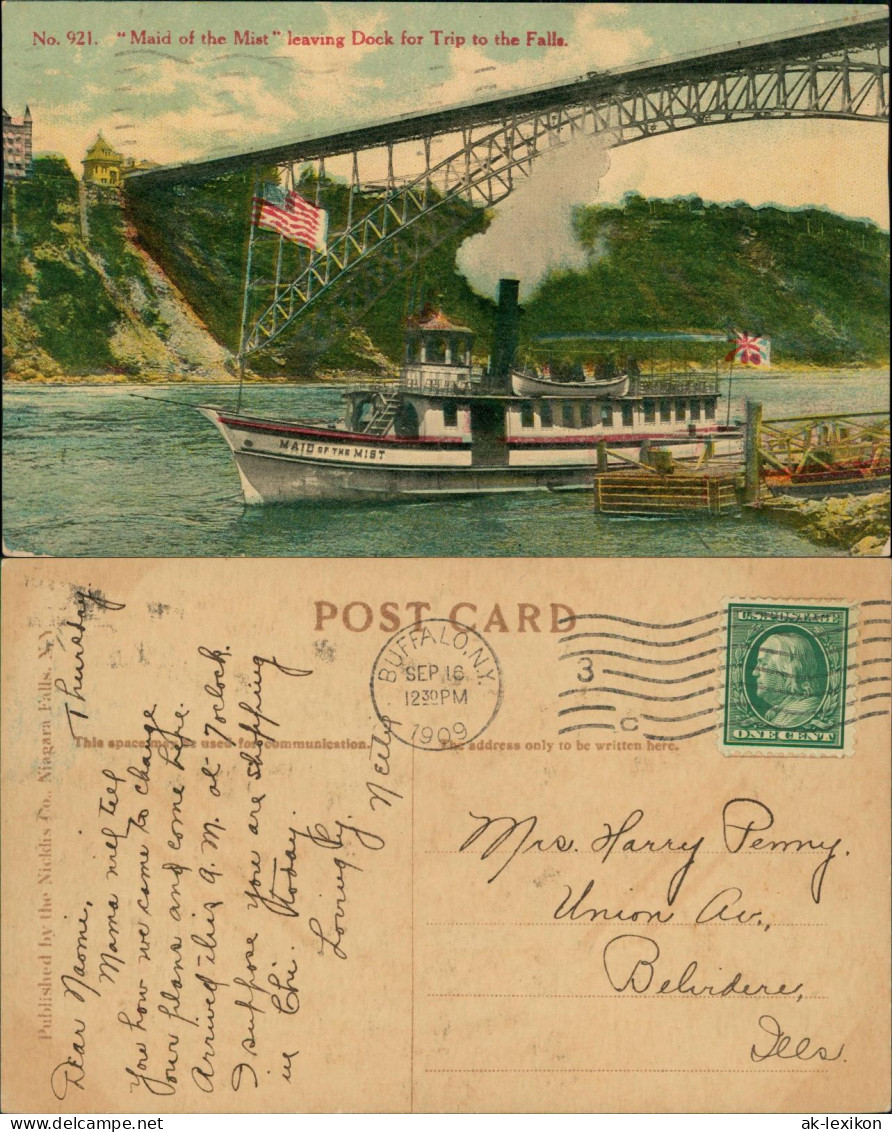 No. 921. "Maid of the Mist" leaving Dock for Trip to the Falls.
MAID OF THE MIST
POST CARD
Published by the Nicklis Co., Niagara Falls, N.Y.
This space may be used for communication.
The address only to be written here.
BUFFALO, N.Y.
SEP 16
12 30 PM
1909
3
C
U.S. POSTAGE
ONE CENT
Thursday.
Dear Naomi,
Mama will tell
you how we came to change
our plans and come here.
Arrived this A.M. at 7 oclock.
I suppose you are shopping
in Chi. today.
Lovingly.
Nelly
Mrs. Harry Penny.
Union Av.,
Belvidere,
Ills.
ak-lexikon